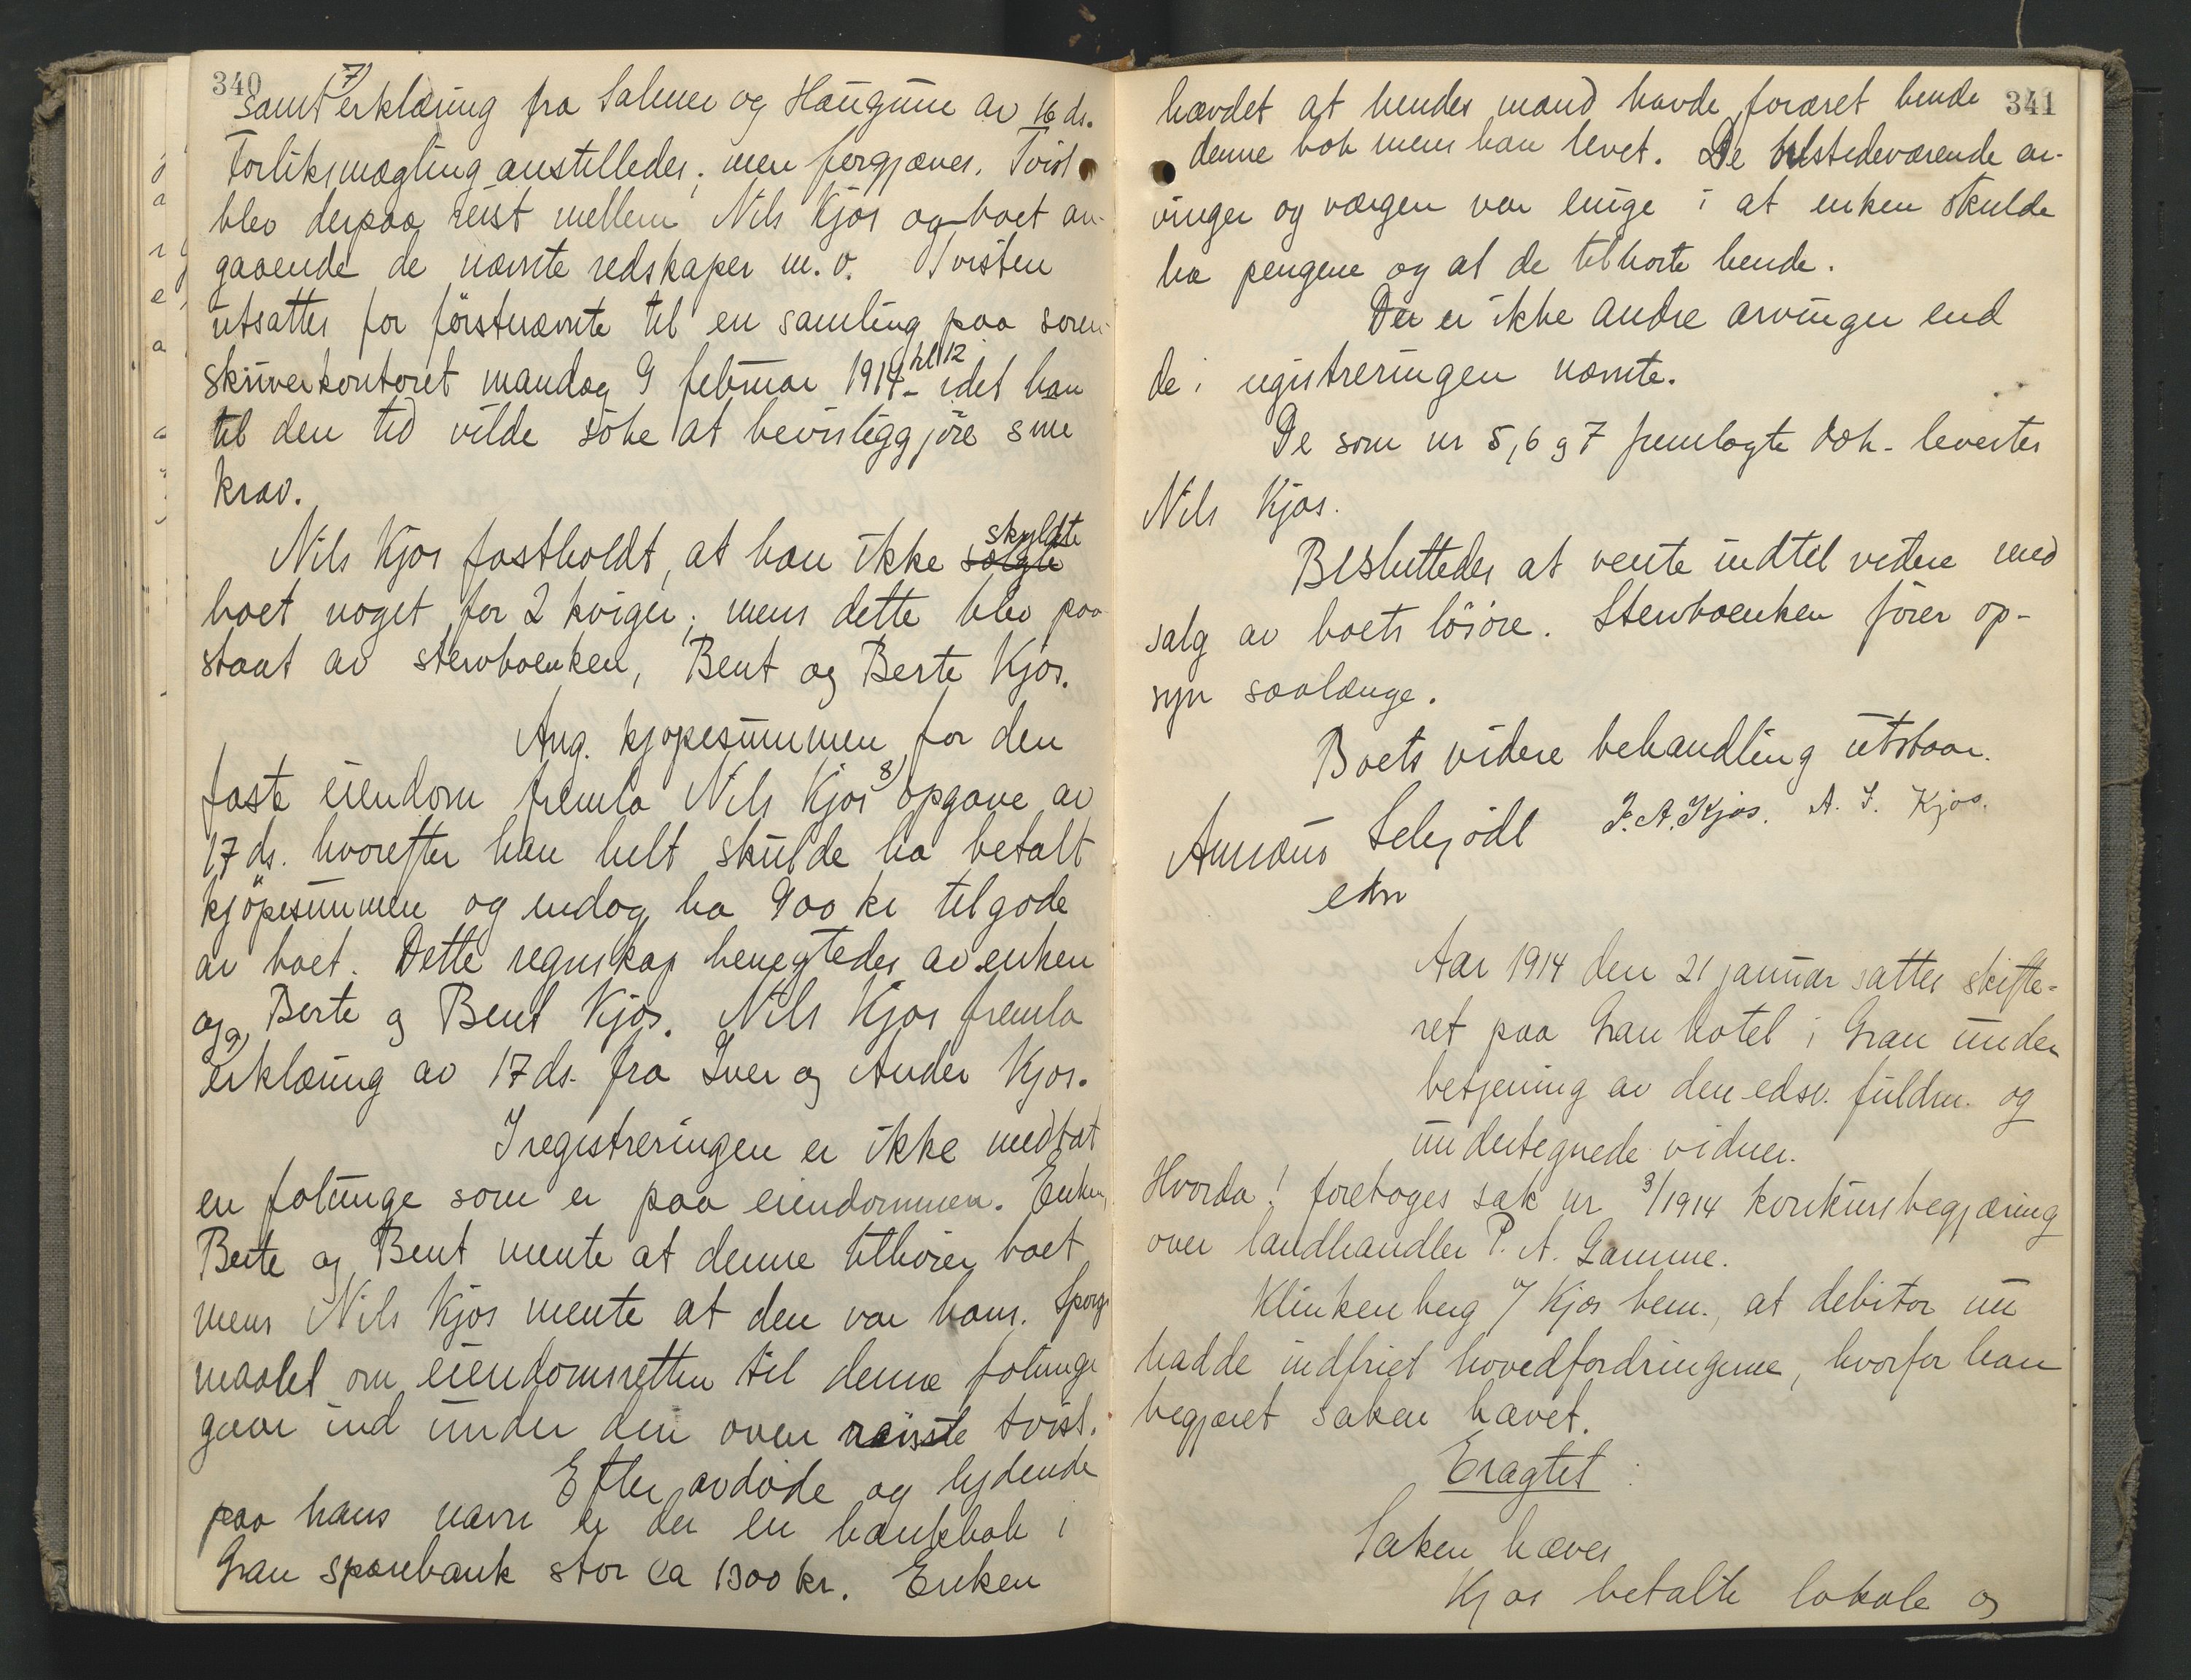 340
samt 7) erklæring fra Salmer og Haugum av 16 ds.
Forliksmægling anstilledes, men forgjæves. Tvist
blev derpaa reist mellem Nils Kjos og boet an-
gaaende de nævnte redskaper m. v. Tvisten
utsattes for førstnævnte til en samling paa soren-
skriverkontoret mandag 9 februar 1914 kl 12 - idet han
til den tid vilde söke at bevisliggjöre sine
krav.
Nils Kjos fastholdt, at han ikke solgte skyldte
boet noget for 2 kviger, mens dette blev paa-
staat av stervboenken, Bent og Berte Kjos.
Ang. kjøpesummen for den
faste eiendom fremla Nils Kjos 8) opgave av
17 ds. hvorefter han helt skulde ha betalt
kjöpesummen og endog ha 900 kr tilgode
av boet. Dette regnskap benegtedes av enken
og Berte og Bent Kjos. Nils Kjos fremla
9) erklæring av 17 ds. fra Iver og Anders Kjos.
I registreringen er ikke medtat
en folunge som er paa eiendommen. Enken,
Berte og Bent mente at denne tilhører boet
mens Nils Kjos mente at den var hans. Spørgs-
maalet om eiendomsretten til denne folunge
gaar ind under den oven reiste tvist.
Efter avdøde og lydende
paa hans navn er der en bankbok i
Gran sparebank stor ca 1300 kr. Enken
341
hævdet at hendes mand havde foræret hende
denne bok mens han levet. De tilstedeværende ar-
vinger og værgen var enige i at enken skulde
ha pengene og at de tilhørte hende.
Der er ikke andre arvinger end
de i registreringen nævnte.
De som nr 5, 6 og 7 fremlagte dok. levertes
Nils Kjos.
Besluttedes at vente indtil videre med
salg av boets lösöre. Stervboenken förer op-
syn saalænge.
Boets videre behandling utstaar.
Schjödt J. A. Kjos. A. I. Kjos.
edsv
Aar 1914 den 21 januar sattes skifte-
ret paa Gran hotel i Gran under
betjening av den edsv. fuldm. og
undertegnede vidner.
Hvorda! foretoges sak nr 3/1914 konkursbegjæring
over landhandler P. A. Gamme.
Klinkenberg v/ Kjos bem., at debitor nu
hadde indfriet hovedfordringerne, hvorfor han
begjæret saken hævet.
Eragtet:
Saken hæves
Kjos betalte lokale og